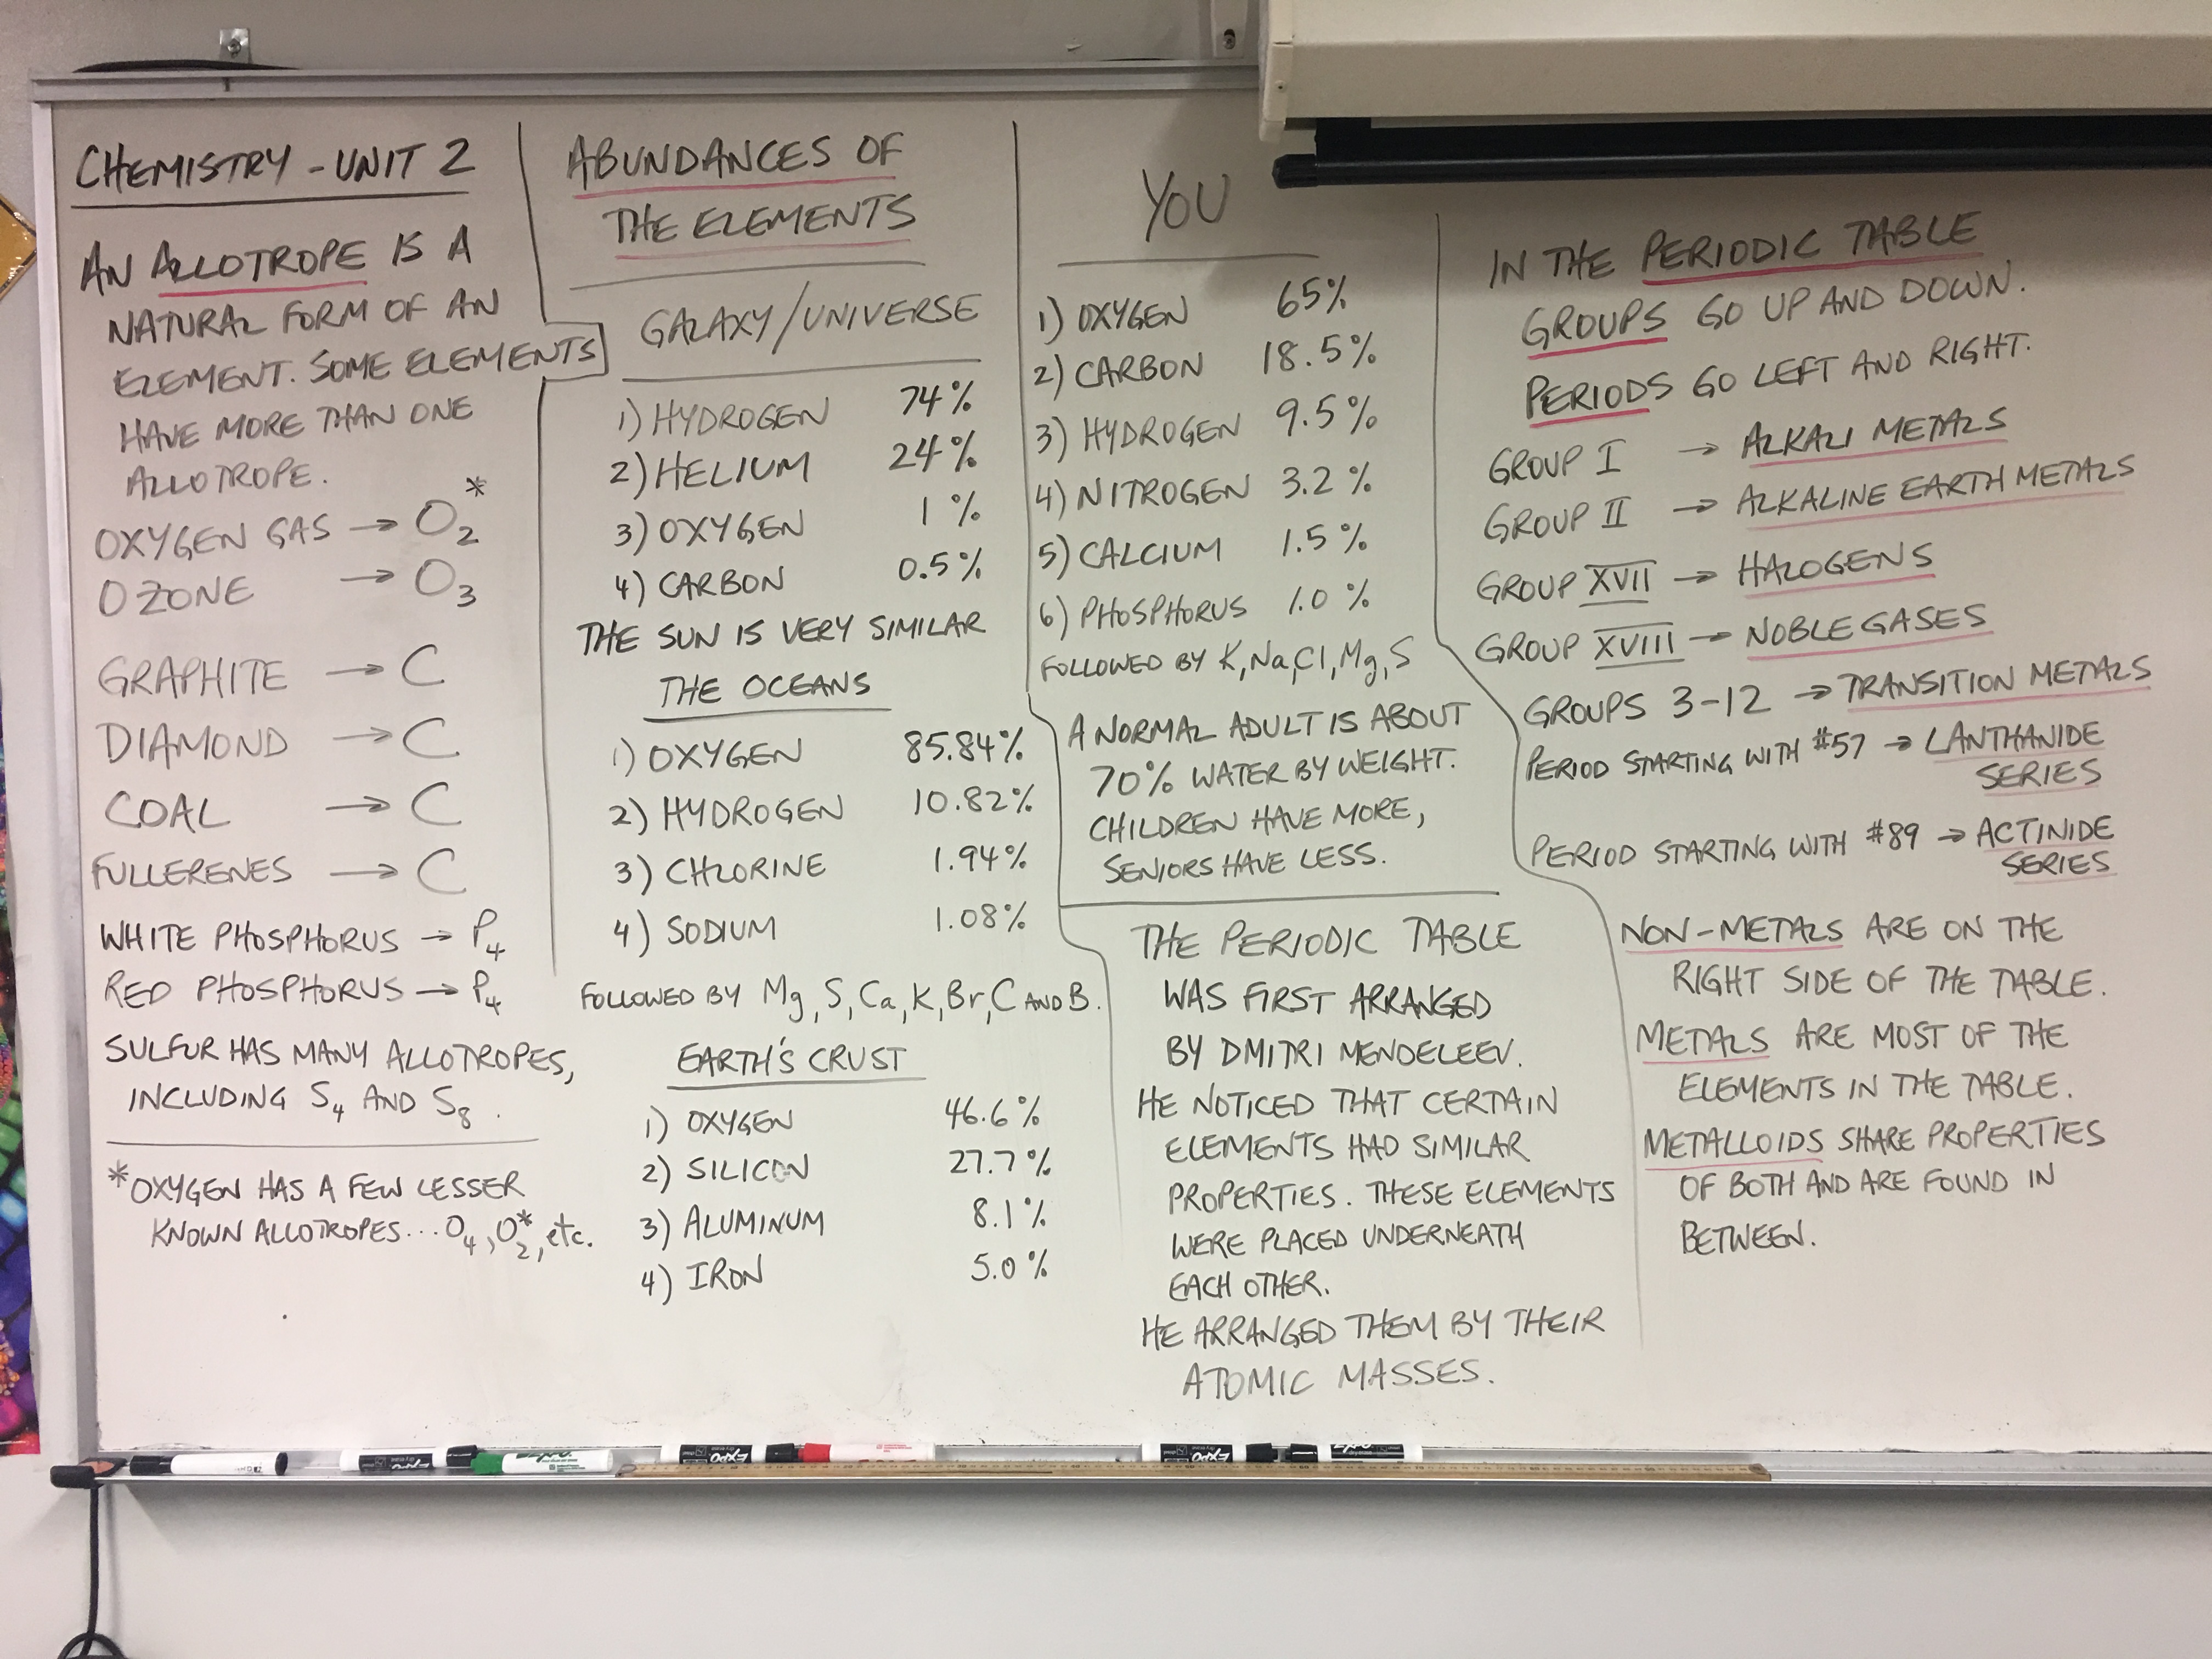 CHEMISTRY - UNIT 2
AN ALLOTROPE IS A
NATURAL FORM OF AN
ELEMENT. SOME ELEMENTS
HAVE MORE THAN ONE
ALLOTROPE.
OXYGEN GAS → O₂*
OZONE → O₃
GRAPHITE → C
DIAMOND → C
COAL → C
FULLERENES → C
WHITE PHOSPHORUS → P₄
RED PHOSPHORUS → P₄
SULFUR HAS MANY ALLOTROPES,
INCLUDING S₄ AND S₈.
*OXYGEN HAS A FEW LESSER
KNOWN ALLOTROPES... O₄, O₂*, etc.
ABUNDANCES OF
THE ELEMENTS
GALAXY/UNIVERSE
1) HYDROGEN 74%
2) HELIUM 24%
3) OXYGEN 1%
4) CARBON 0.5%
THE SUN IS VERY SIMILAR
THE OCEANS
1) OXYGEN 85.84%
2) HYDROGEN 10.82%
3) CHLORINE 1.94%
4) SODIUM 1.08%
FOLLOWED BY Mg, S, Ca, K, Br, C AND B.
EARTH'S CRUST
1) OXYGEN 46.6%
2) SILICON 27.7%
3) ALUMINUM 8.1%
4) IRON 5.0%
YOU
1) OXYGEN 65%
2) CARBON 18.5%
3) HYDROGEN 9.5%
4) NITROGEN 3.2%
5) CALCIUM 1.5%
6) PHOSPHORUS 1.0%
FOLLOWED BY K, Na, Cl, Mg, S
A NORMAL ADULT IS ABOUT
70% WATER BY WEIGHT.
CHILDREN HAVE MORE,
SENIORS HAVE LESS.
THE PERIODIC TABLE
WAS FIRST ARRANGED
BY DMITRI MENDELEEV.
HE NOTICED THAT CERTAIN
ELEMENTS HAD SIMILAR
PROPERTIES. THESE ELEMENTS
WERE PLACED UNDERNEATH
EACH OTHER.
HE ARRANGED THEM BY THEIR
ATOMIC MASSES.
IN THE PERIODIC TABLE
GROUPS GO UP AND DOWN.
PERIODS GO LEFT AND RIGHT.
GROUP I → ALKALI METALS
GROUP II → ALKALINE EARTH METALS
GROUP XVII → HALOGENS
GROUP XVIII → NOBLE GASES
GROUPS 3-12 → TRANSITION METALS
PERIOD STARTING WITH #57 → LANTHANIDE
SERIES
PERIOD STARTING WITH #89 → ACTINIDE
SERIES
NON-METALS ARE ON THE
RIGHT SIDE OF THE TABLE.
METALS ARE MOST OF THE
ELEMENTS IN THE TABLE.
METALLOIDS SHARE PROPERTIES
OF BOTH AND ARE FOUND IN
BETWEEN.
EXPO
EXPO
EXPO